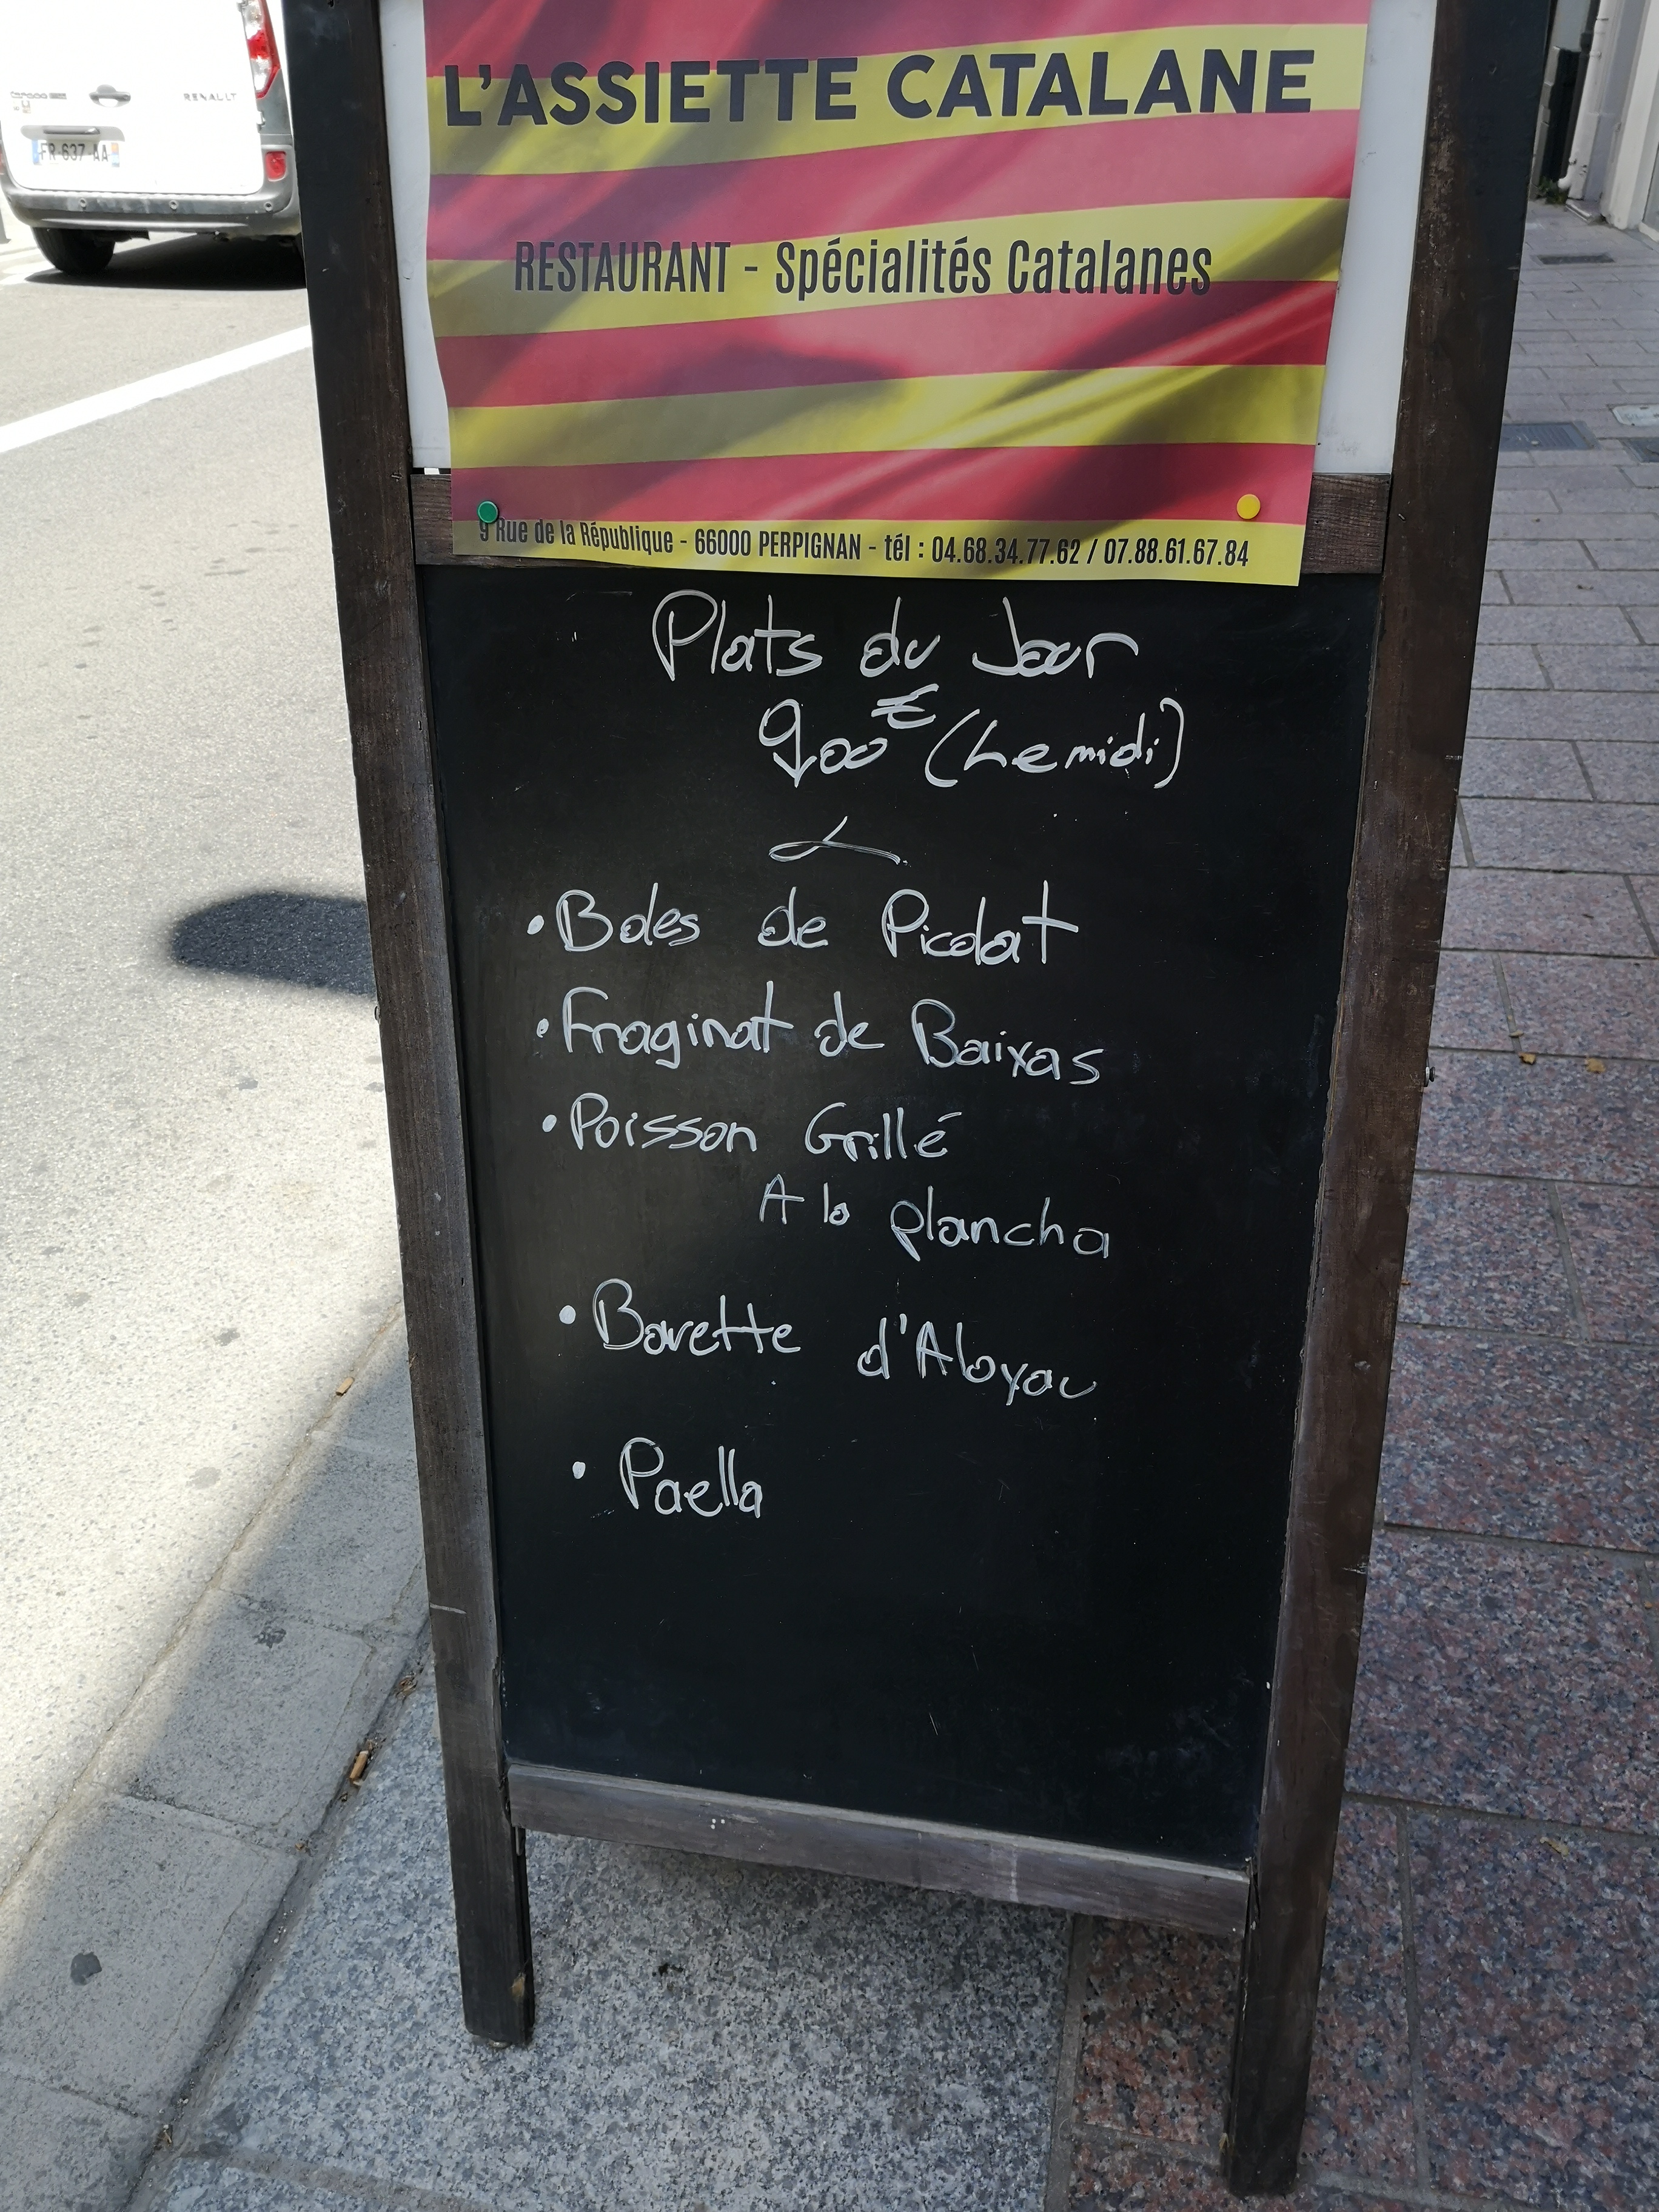 RENAULT
FR-637-AA
L'ASSIETTE CATALANE
RESTAURANT - Spécialités Catalanes
9 Rue de la République - 66000 PERPIGNAN - tél : 04.68.34.77.62 / 07.88.61.67.84
Plats du Jour
9,00€ (Le midi)
• Boles de Picolat
• Fraginat de Baixas
• Poisson Grillé
A la plancha
• Bavette d'Aloyau
• Paella